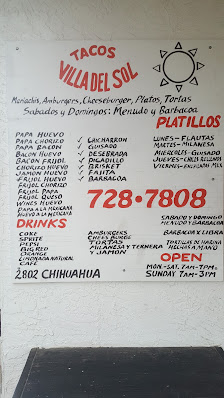 TACOS
VILLA DEL SOL
Mariachis, Amburgers, Cheeseburger, Platos, Tortas
Sabados y Domingos: Menudo y Barbacoa
PLATILLOS
PAPA HUEVO
PAPA CHORIZO
PAPA BACON
BACON HUEVO
BACON FRIJOL
CHORIZO HUEVO
JAMON HUEVO
FRIJOL HUEVO
FRIJOL CHORIZO
FRIJOL PAPA
FRIJOL QUESO
WINES HUEVO
PAPA A LA MEXICANA
HUEVO A LA MEXICANA
✓ CHICHARRON
✓ GUISADO
✓ DESEBRADA
✓ PICADILLO
✓ BRISKET
✓ FAJITA
✓ BARBACOA
LUNES-FLAUTAS
MARTES-MILANESA
MIERCOLES-GUISADO
JUEVES-CHILES RELLENOS
VIERNES-ENCHILADAS
728•7808
DRINKS
COKE
SPRITE
PEPSI
BIG RED
ORANGE
LIMONADA NATURAL
CAFE
AMBURGERS
CHEES BURGE
TORTAS
MILANESA Y TERNERA
Y JAMON
SABADO Y DOMINGO
MENUDO Y BARBACOA
BARBACOA X LIBRA
TORTILLAS DE HARINA
HECHAS A MANO
OPEN
MON-SAT. 7AM-7PM.
SUNDAY 7AM-3PM
2802 CHIHUAHUA